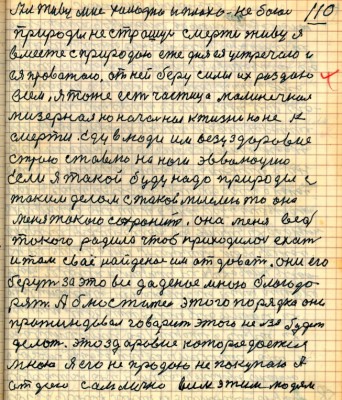 110
живу мне холодно и плохо. не боюс
природы не страшус смерти живу я
вместе с природою ее дня ея встречаю и
ея провожаю, от ней беру силы их роздаю
всем, я тоже ест частица маленечкая
мизерная но напсиная к жизни но не к
смерти. еду в люди им везу здоровие
строю ставлю на ноги эволюцию
если я такой буду надо природы с
таким делом с такой мыслю то она
меня такого сохранит, она меня вед
такого родила чтоб приходилос ехат
и там свае найденое им отдоват, они его
берут за это все даденое мною благодо-
рят. А блюстител этого порядка они
говорит этого не лзя будет
делат. это здаровие которя достися
мною я его не продою не покупаю я
отдою сам лично всим этим людям